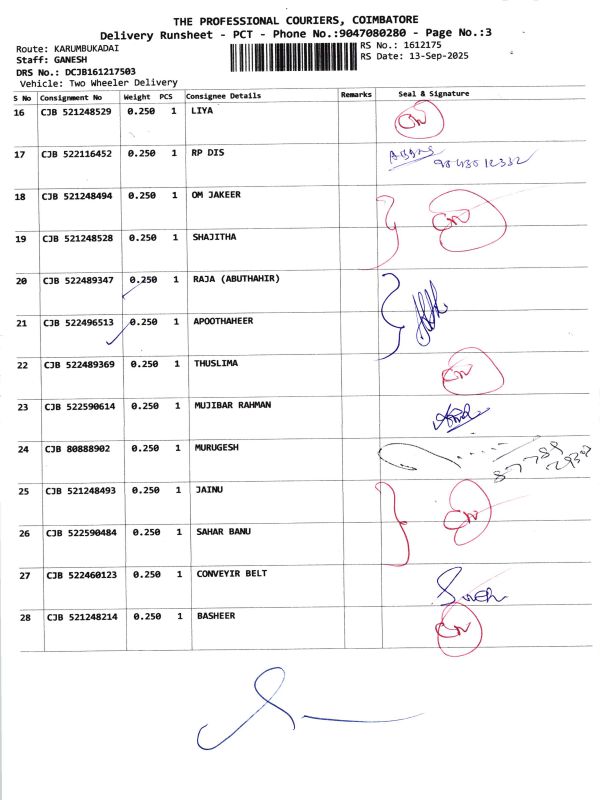 THE PROFESSIONAL COURIERS, COIMBATORE
Delivery Runsheet - PCT - Phone No.:9047080280 - Page No.:3
Route: KARUMBUKADAI RS No.: 1612175
Staff: GANESH RS Date: 13-Sep-2025
DRS No.: DCJB161217503
Vehicle: Two Wheeler Delivery
S No Consignment No Weight PCS Consignee Details Remarks Seal & Signature
16 CJB 521248529 0.250 1 LIYA CN
17 CJB 522116452 0.250 1 RP DIS
18 CJB 521248494 0.250 1 OM JAKEER CN
19 CJB 521248528 0.250 1 SHAJITHA
20 CJB 522489347 0.250 1 RAJA (ABUTHAHIR)
21 CJB 522496513 0.250 1 APOOTHAHEER
22 CJB 522489369 0.250 1 THUSLIMA CN
23 CJB 522590614 0.250 1 MUJIBAR RAHMAN
24 CJB 80888902 0.250 1 MURUGESH
25 CJB 521248493 0.250 1 JAINU CN
26 CJB 522590484 0.250 1 SAHAR BANU
27 CJB 522460123 0.250 1 CONVEYIR BELT
28 CJB 521248214 0.250 1 BASHEER CN